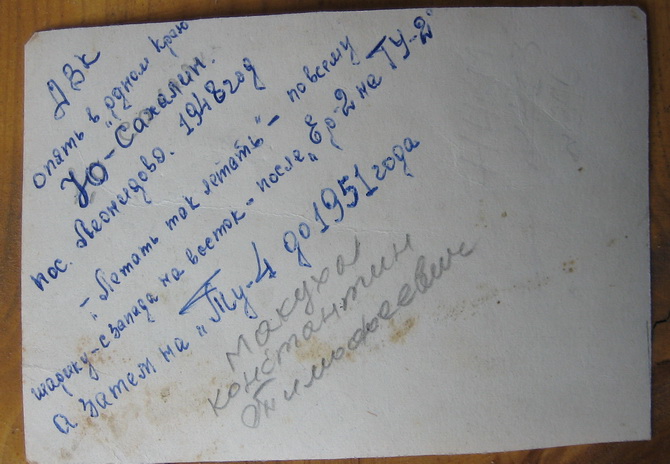 ДВК
опять в "родном краю
Ю-Сахалин.
пос. Леонидово. 1948 год
"- Летать так летать" - по всему
шарику - с запада на восток - после "Ер-2 на ТУ-2"
а затем на "Ту-4 до 1951 года
Макуха
константин
Тимофеевич